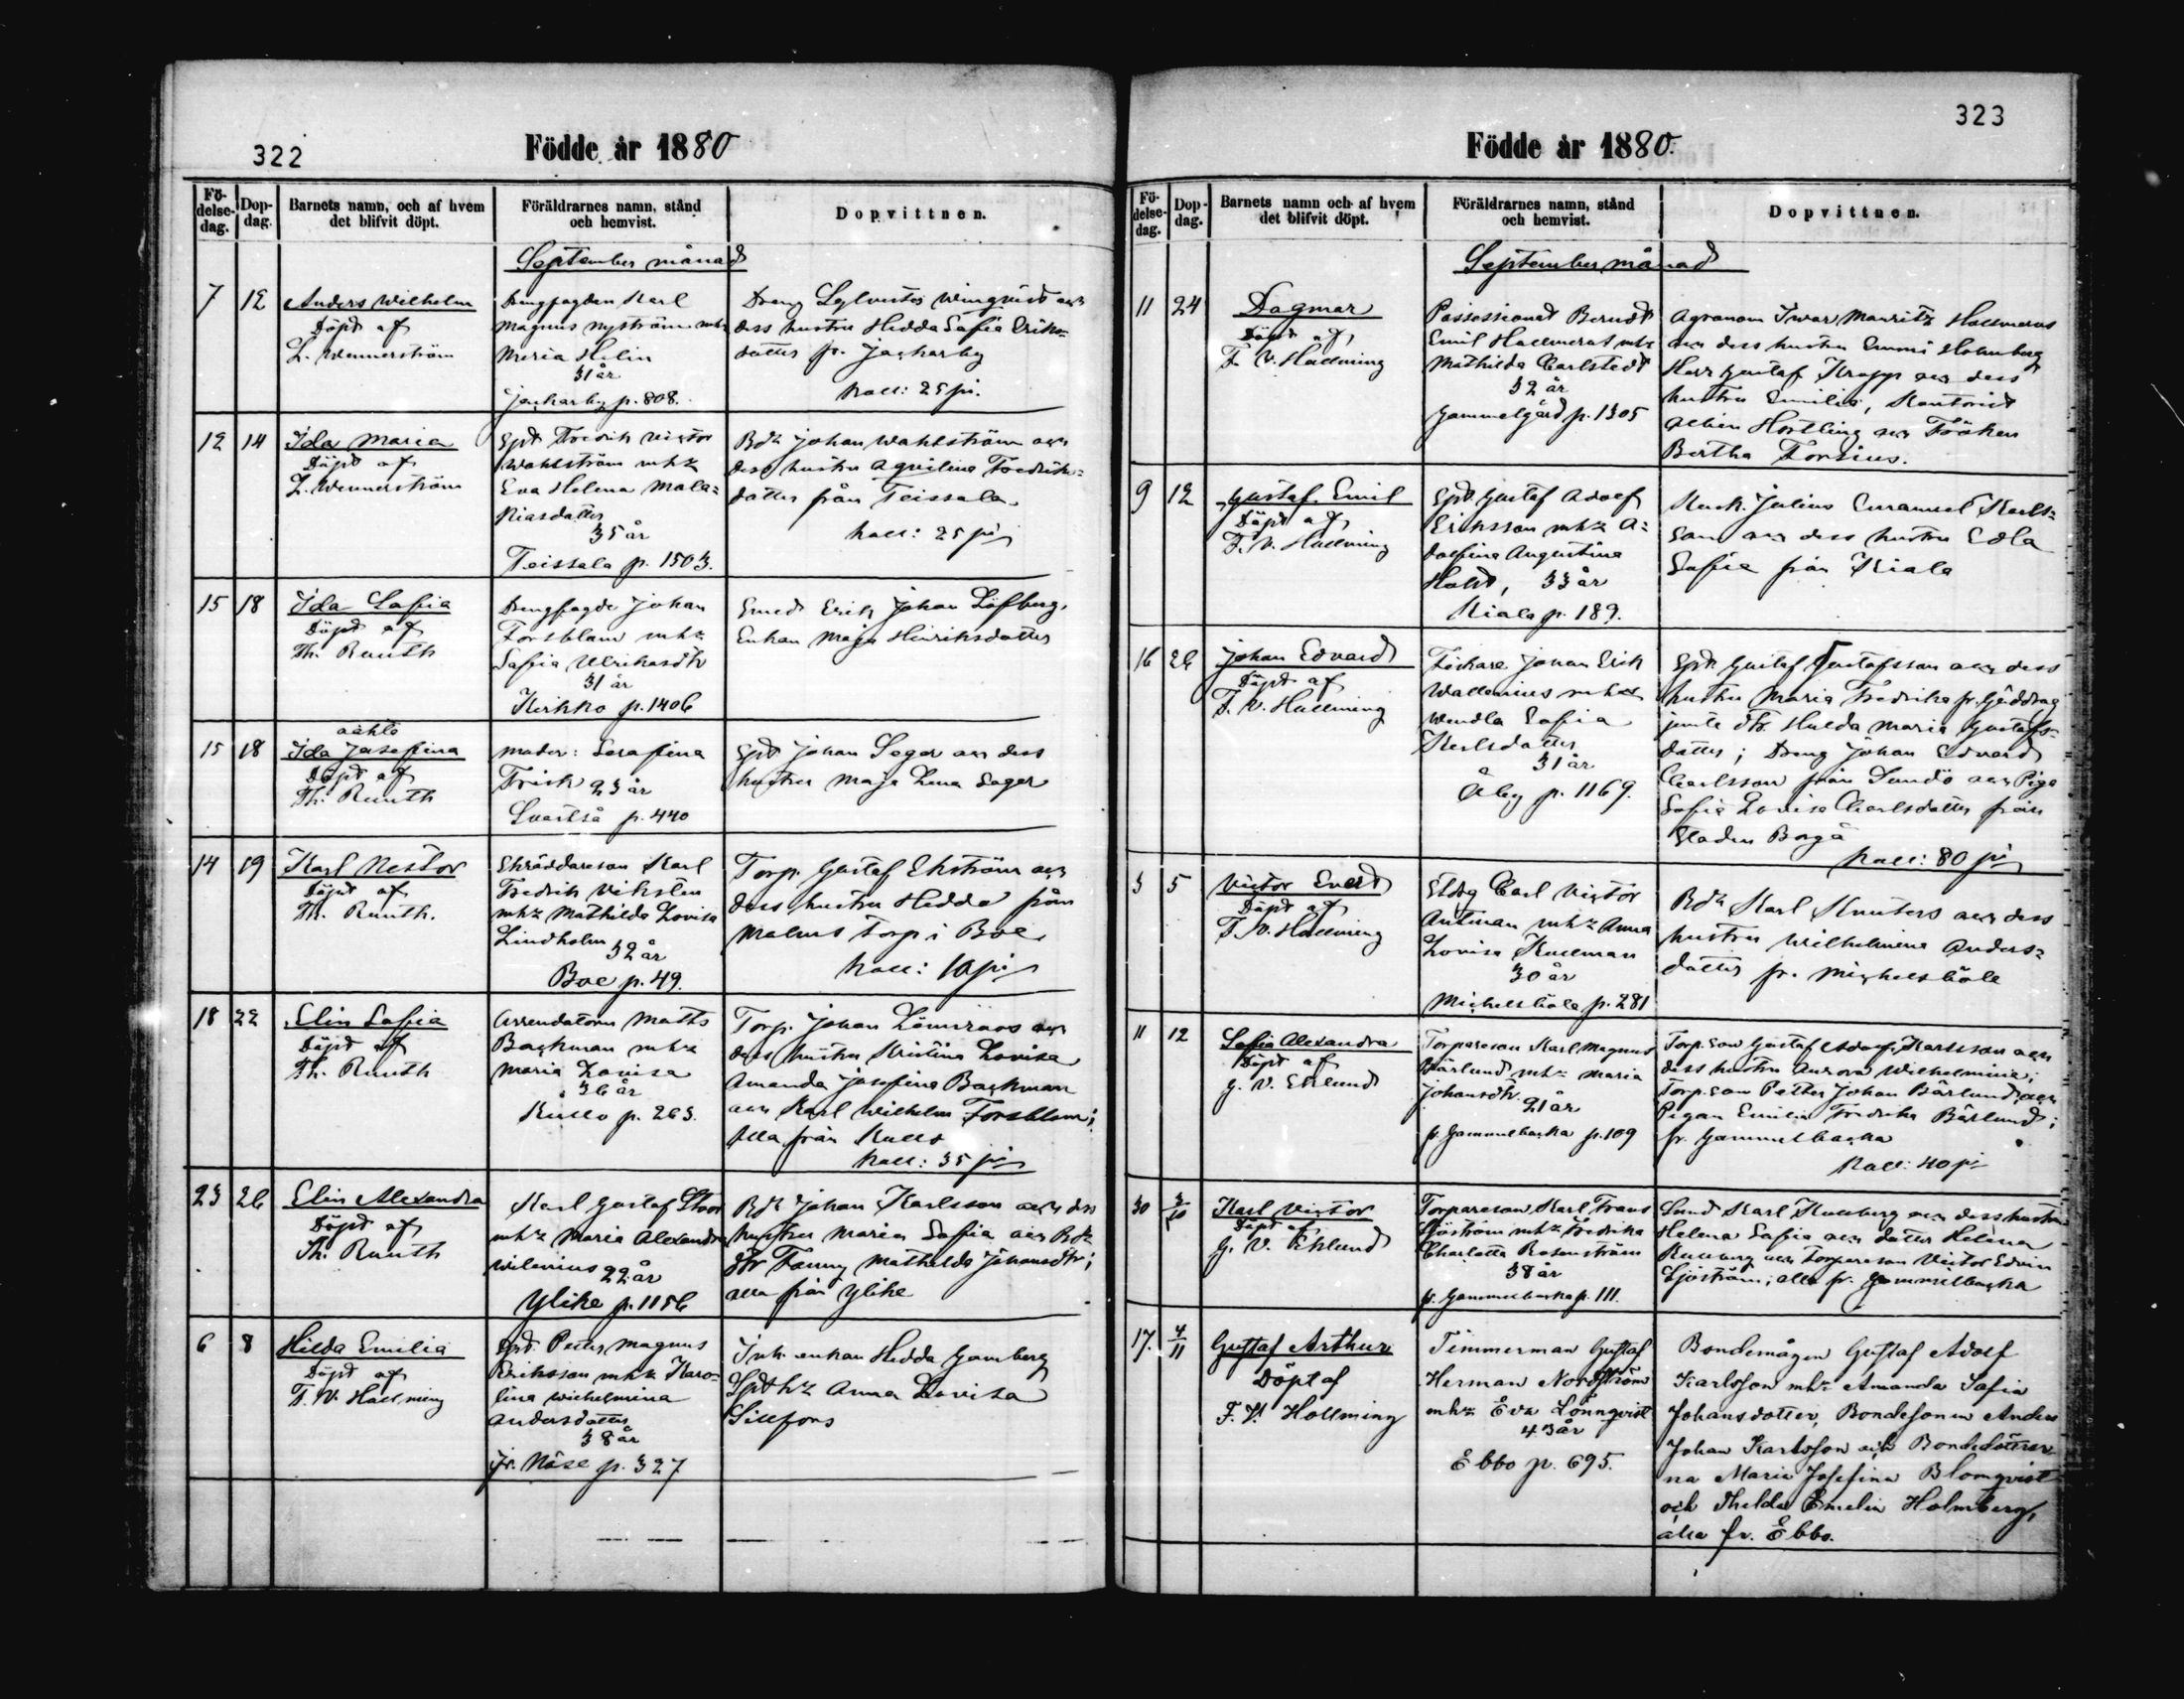 322
Födde år 1880
Fö-
delse-
dag.
Dop-
dag.
Barnets namn, och af hvem
det blifvit döpt.
Föräldrarnes namn, stånd
och hemvist.
Dopvittnen.
September månad
7 12 Anders Wilhelm
Döpt af
L. Wennerström
Drengfogden Karl
Magnus Nyström mhz
Maria Helin
31 år
Jackarby p. 808.
Dreng
dess hustru Hedda Sofia Eriks-
dotter fr. Jackarby
Koll: 25 pi.
12 14 Ida Maria
Döpt af
L. Wennerström
Spt. Fredrik Victor
Wahlström mhz
Eva Helena Mala-
kiasdotter
35 år
Teissala p. 1503.
Bdr Johan Wahlström och
dess hustru Aqvilina Fredriks-
dotter från Teissala
Koll: 25 pi
15 18 Ida Sofia
Döpt af
Th. Ruuth
Drengfogde Johan
Forsblom mhz
Sofia Ulrikasdtr
31 år
Kirkko p. 1406
Smed Erik Johan Löfberg,
Enkan Maja Hinriksdotter
15 18 oäkta
Ida Josefina
Döpt af
Th. Ruuth
Moder: Serafina
Frisk 23 år
Svartså p. 440
Spt Johan Sager och dess
hustru Maja Lena Sager
14 19 Karl Nestor
Döpt af
Th. Ruuth.
Skräddareson Karl
Fredrik Vikstén
mhz Mathilda Lovisa
Lindholm 32 år
Boe p. 49.
Torp. Gustaf Ekström och
dess hustru Hedda från
Malms torp i Boe
Koll: 10 pi
18 22 Elin Sofia
Döpt af
Th. Ruuth
Arrendatorn Matts
Backman mhz
Maria Lovisa
36 år
Kullo p. 263.
Torp. Johan
dess hustru Kristina Lovisa
Amanda Josefina Backman
och Karl Wilhelm Forsblom;
Alla från Kullo
Koll: 35 pi
23 26 Elin Alexandra
Döpt af
Th. Ruuth
Karl Gustaf Stoor
mhz Maria Alexandra
Wilenius 22 år
Ylike p. 1156
Bdr Johan Karlsson och dess
hustru Maria Sofia och Bdr
dtr Fanny Mathilda Johansdtr;
alla från Ylike
6 8 Hilda Emilia
Döpt af
F. W. Hollming
Spt. Petter Magnus
Eriksson mhz Karo-
lina Wilhelmina
Andersdotter
38 år
fr. Näse p. 327
Inh. enkan Hedda Gamberg
Spt hz Anna Lovisa
Sillfors
323
Födde år 1880.
Fö-
delse-
dag.
Dop-
dag.
Barnets namn och af hvem
det blifvit döpt.
Föräldrarnes namn, stånd
och hemvist.
Dopvittnen.
September månad
11 24 Dagmar
Döpt af
F. V. Hollming
Possessionat Berndt
Emil Hollmerus mhz
Mathilda Carlstedt
32 år
Gammelgård p. 1305
Agronom Iwar Mauritz Hollmerus
och dess hustru Emmi Holmberg
Herr Gustaf Krapp och dess
hustru Emilie, Kantorist
Albin Hortling och Fröken
Bertha Forsius.
9 12 Gustaf Emil
Döpt af
F. V. Hollming
Spt. Gustaf Adolf
Eriksson mhz A-
dolfina Augustina
Holst, 33 år
Kiala p. 189.
Kusk. Julius Emanuel Karls-
son och dess hustru Edla
Sofia från Kiala
16 26 Johan Edvard
Döpt af
F. V. Hollming
Fiskare Johan Erik
Wallenius mhz
Wendla Sofia
Karlsdotter
31 år
Åby p. 1169.
Spt. Gustaf Gustafsson och dess
hustru Maria Fredrika fr. Gäddrag
jemte dtr. Hulda Maria Gustafs-
dotter; Dreng Johan Edvard
Carlsson från Sundö och Piga
Sofia Lovisa Charlsdotter från
Staden Borgå
Koll: 80 pi
3 5 Victor Evert
Döpt af
F. V. Hollming
Carl Victor
Antman mhz Anna
Lovisa Kullman
30 år
Mickelsböle p. 281
Bdr Karl Knuters och dess
hustru Wilhelmina Anders-
dotter fr. Mickelsböle
11 12 Sofia Alexandra
Döpt af
G. V. Eklund
Torpareson Karl Magnus
Bärlund mhz Maria
Johansdtr.
21 år
fr. Gammelbacka p. 109
Torp. son Gustaf Adolf Karlsson och
dess hustru Aurora Wilhelmina;
Torp. son Petter Johan Bärlund och
Pigan Emilia Fredrika Bärlund;
fr. Gammelbacka
Koll: 40 pi
30 3/10 Karl Victor
Döpt af
G. V. Eklund
Torpareson Karl Frans
Sjöström mhz Fredrika
Charlotta Rosenström
38 år
fr. Gammelbacka p. 111.
Smed Karl Kullberg och dess hustru
Helena Sofia och dotter Helena
Kullberg och Torpareson Victor Edvin
Sjöström; alla fr. Gammelbacka
17. 4/11 Gustaf Arthur
Döpt af
F. V. Hollming
Timmerman Gustaf
Herman Nordström
mhz Eva Lönnqvist
43 år
Ebbo p. 695.
Bondemågen Gustaf Adolf
Karlsson mhz Amanda Sofia
Johansdotter, Bondesonen Anders
Johan Karlsson och Bondedöttrar
na Maria Josefina Blomqvist
och Thelda Emelia Holmberg,
alla fr. Ebbo.